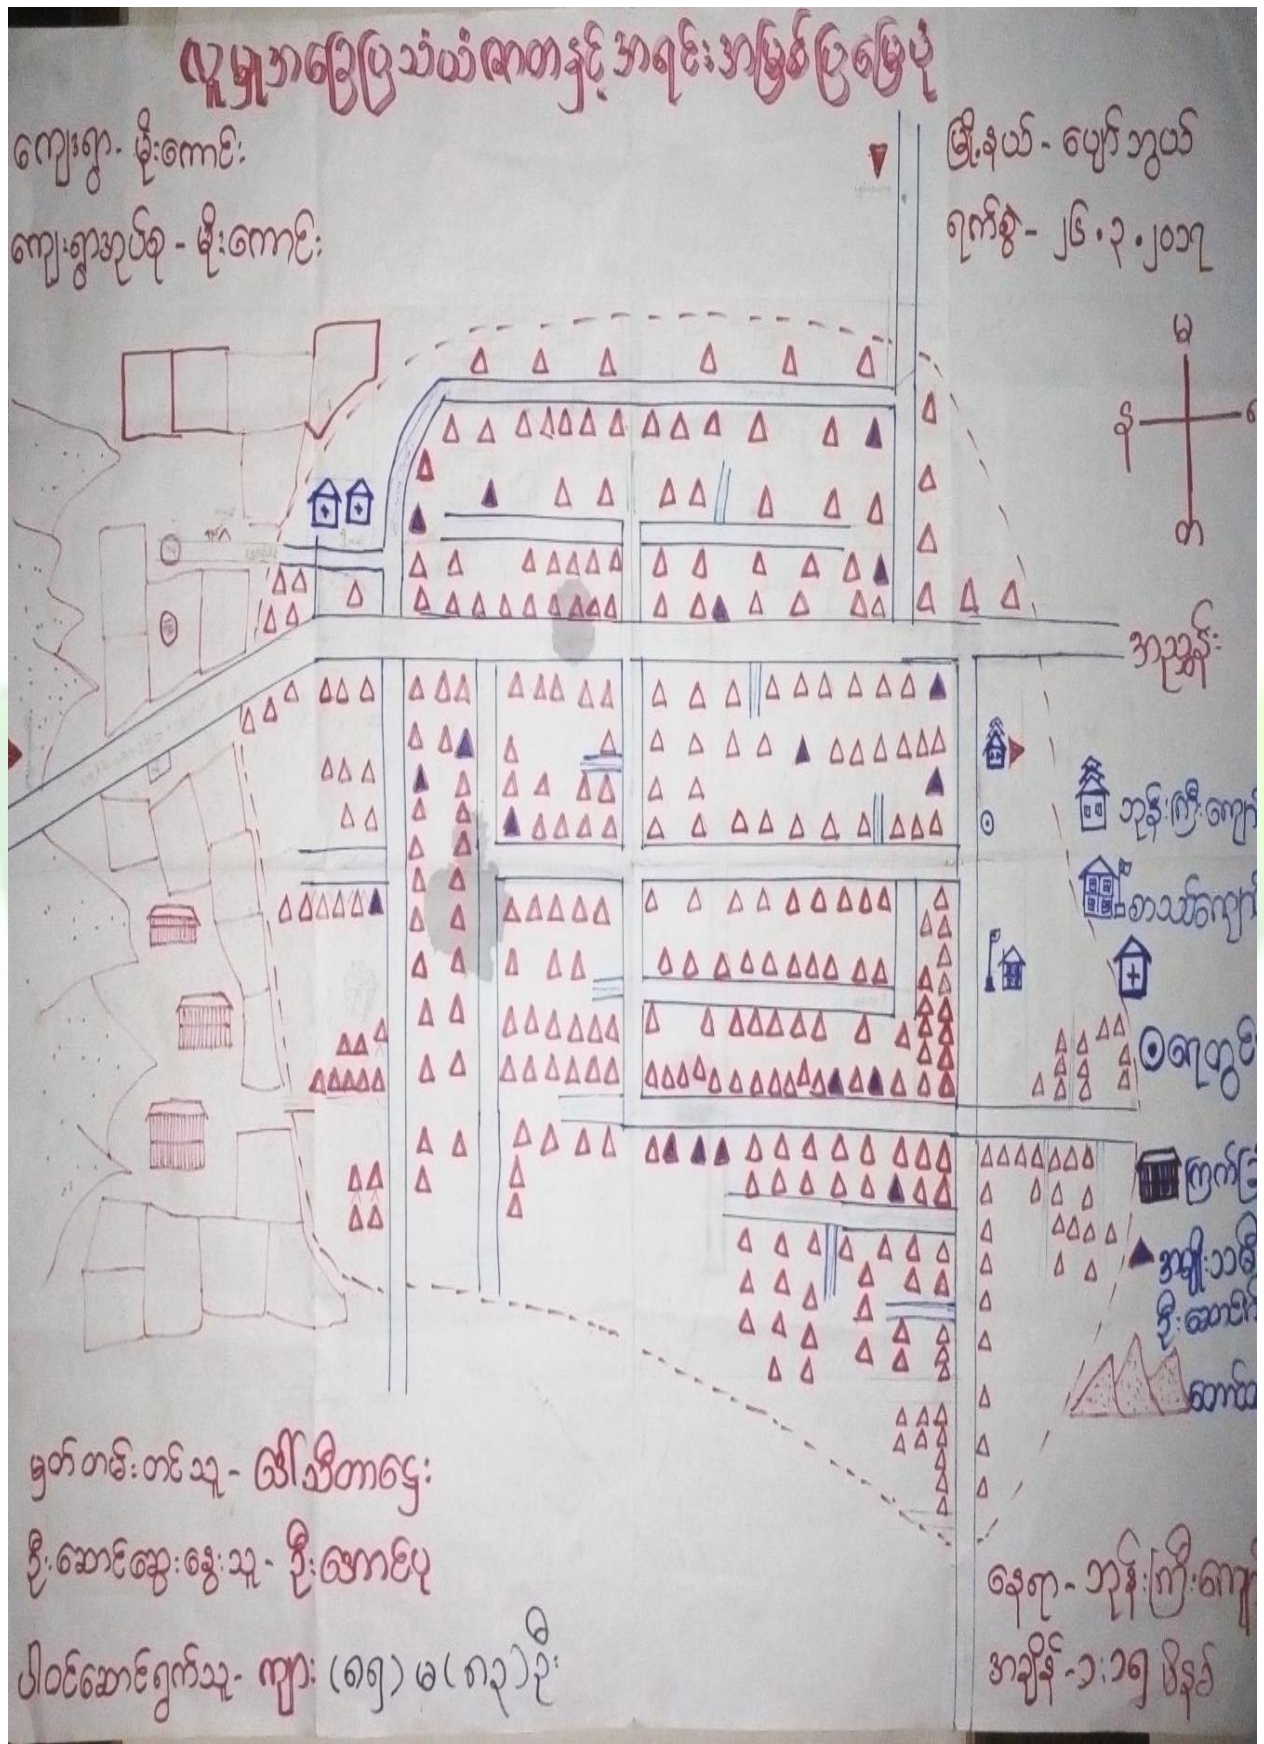 လူမှုအခြေပြသယံဇာတနှင့် အရင်းအမြစ်ပြမြေပုံ
ကျေးရွာ - မိုးကောင်း
မြို့နယ် - ပျော်ဘွယ်
ကျေးရွာအုပ်စု - မိုးကောင်း
ရက်စွဲ - ၂၆.၃.၂၀၁၇
မ
န
တ
အညွှန်း
ဘုန်းကြီးကျော
စာသင်ကျော
ရေတွင်
ကြက်ခြံ
အမျိုးသမီ
ဦးဆောင်
မှတ်တမ်းတင်သူ -
ဦးဆောင်ဆွေးနွေးသူ - ဦးအောင်ပု
ပါဝင်ဆောင်ရွက်သူ - ကျား (၈၅) မ (၈၃) ဦး
နေရာ - ဘုန်းကြီးကျော
အချိန် - ၁:၁၅ မိနစ်